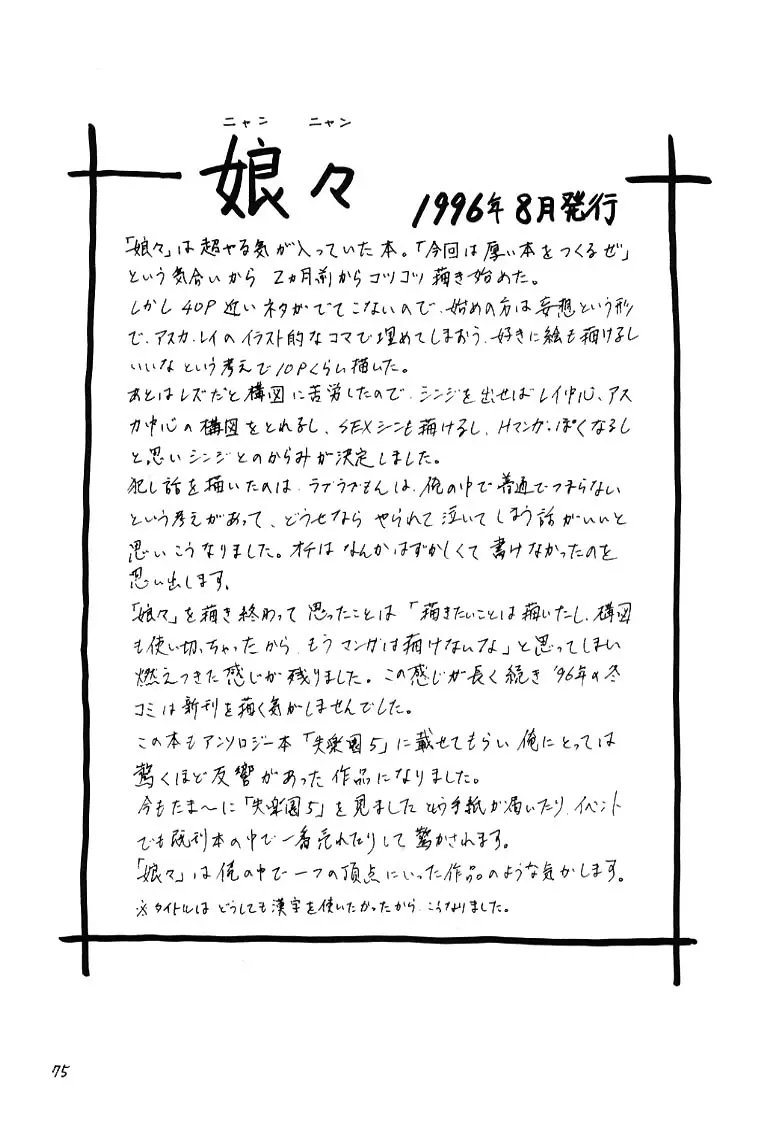 ニャン ニャン
娘々
1996年8月発行
「娘々」は超やる気が入っていた本。「今回は厚い本をつくるぜ」
という気合いから 2ヵ月前からコツコツ描き始めた。
しかし 40P 近いネタがでてこないので、始めの方は妄想という形
で、アスカ、レイのイラスト的なコマで埋めてしまおう、好きに絵も描けるし
いいなという考えで10Pくらい描いた。
あとはレズだと構図に苦労したので、シンジを出せばレイ中心、アス
カ中心の構図をとれるし、SEXシーンも描けるし、Hマンガっぽくなるし
と思いシンジとのからみが決定しました。
犯し話を描いたのは、ラブラブもんは、俺の中で普通でつまらない
という考えがあって、どうせなら やられて泣いてしまう話がいいと
思いこうなりました。オチはなんかはずかしくて書けなかったのを
思い出します。
「娘々」を描き終わって思ったことは「描きたいことは描いたし、構図
も使い切っちゃったから、もうマンガは描けないな」と思ってしまい
燃えつきた感じが残りました。この感じが長く続き '96年の冬
コミは新刊を描く気がしませんでした。
この本もアンソロジー本「失楽園5」に載せてもらい 俺にとっては
驚くほど反響があった作品になりました。
今もたま〜に「失楽園5」を見ましたという手紙が届いたり、イベント
でも既刊本の中で一番売れたりして驚かされます。
「娘々」は俺の中で一つの頂点にいった作品のような気がします。
※タイトルは どうしても漢字を使いたかったから、こうなりました。
75